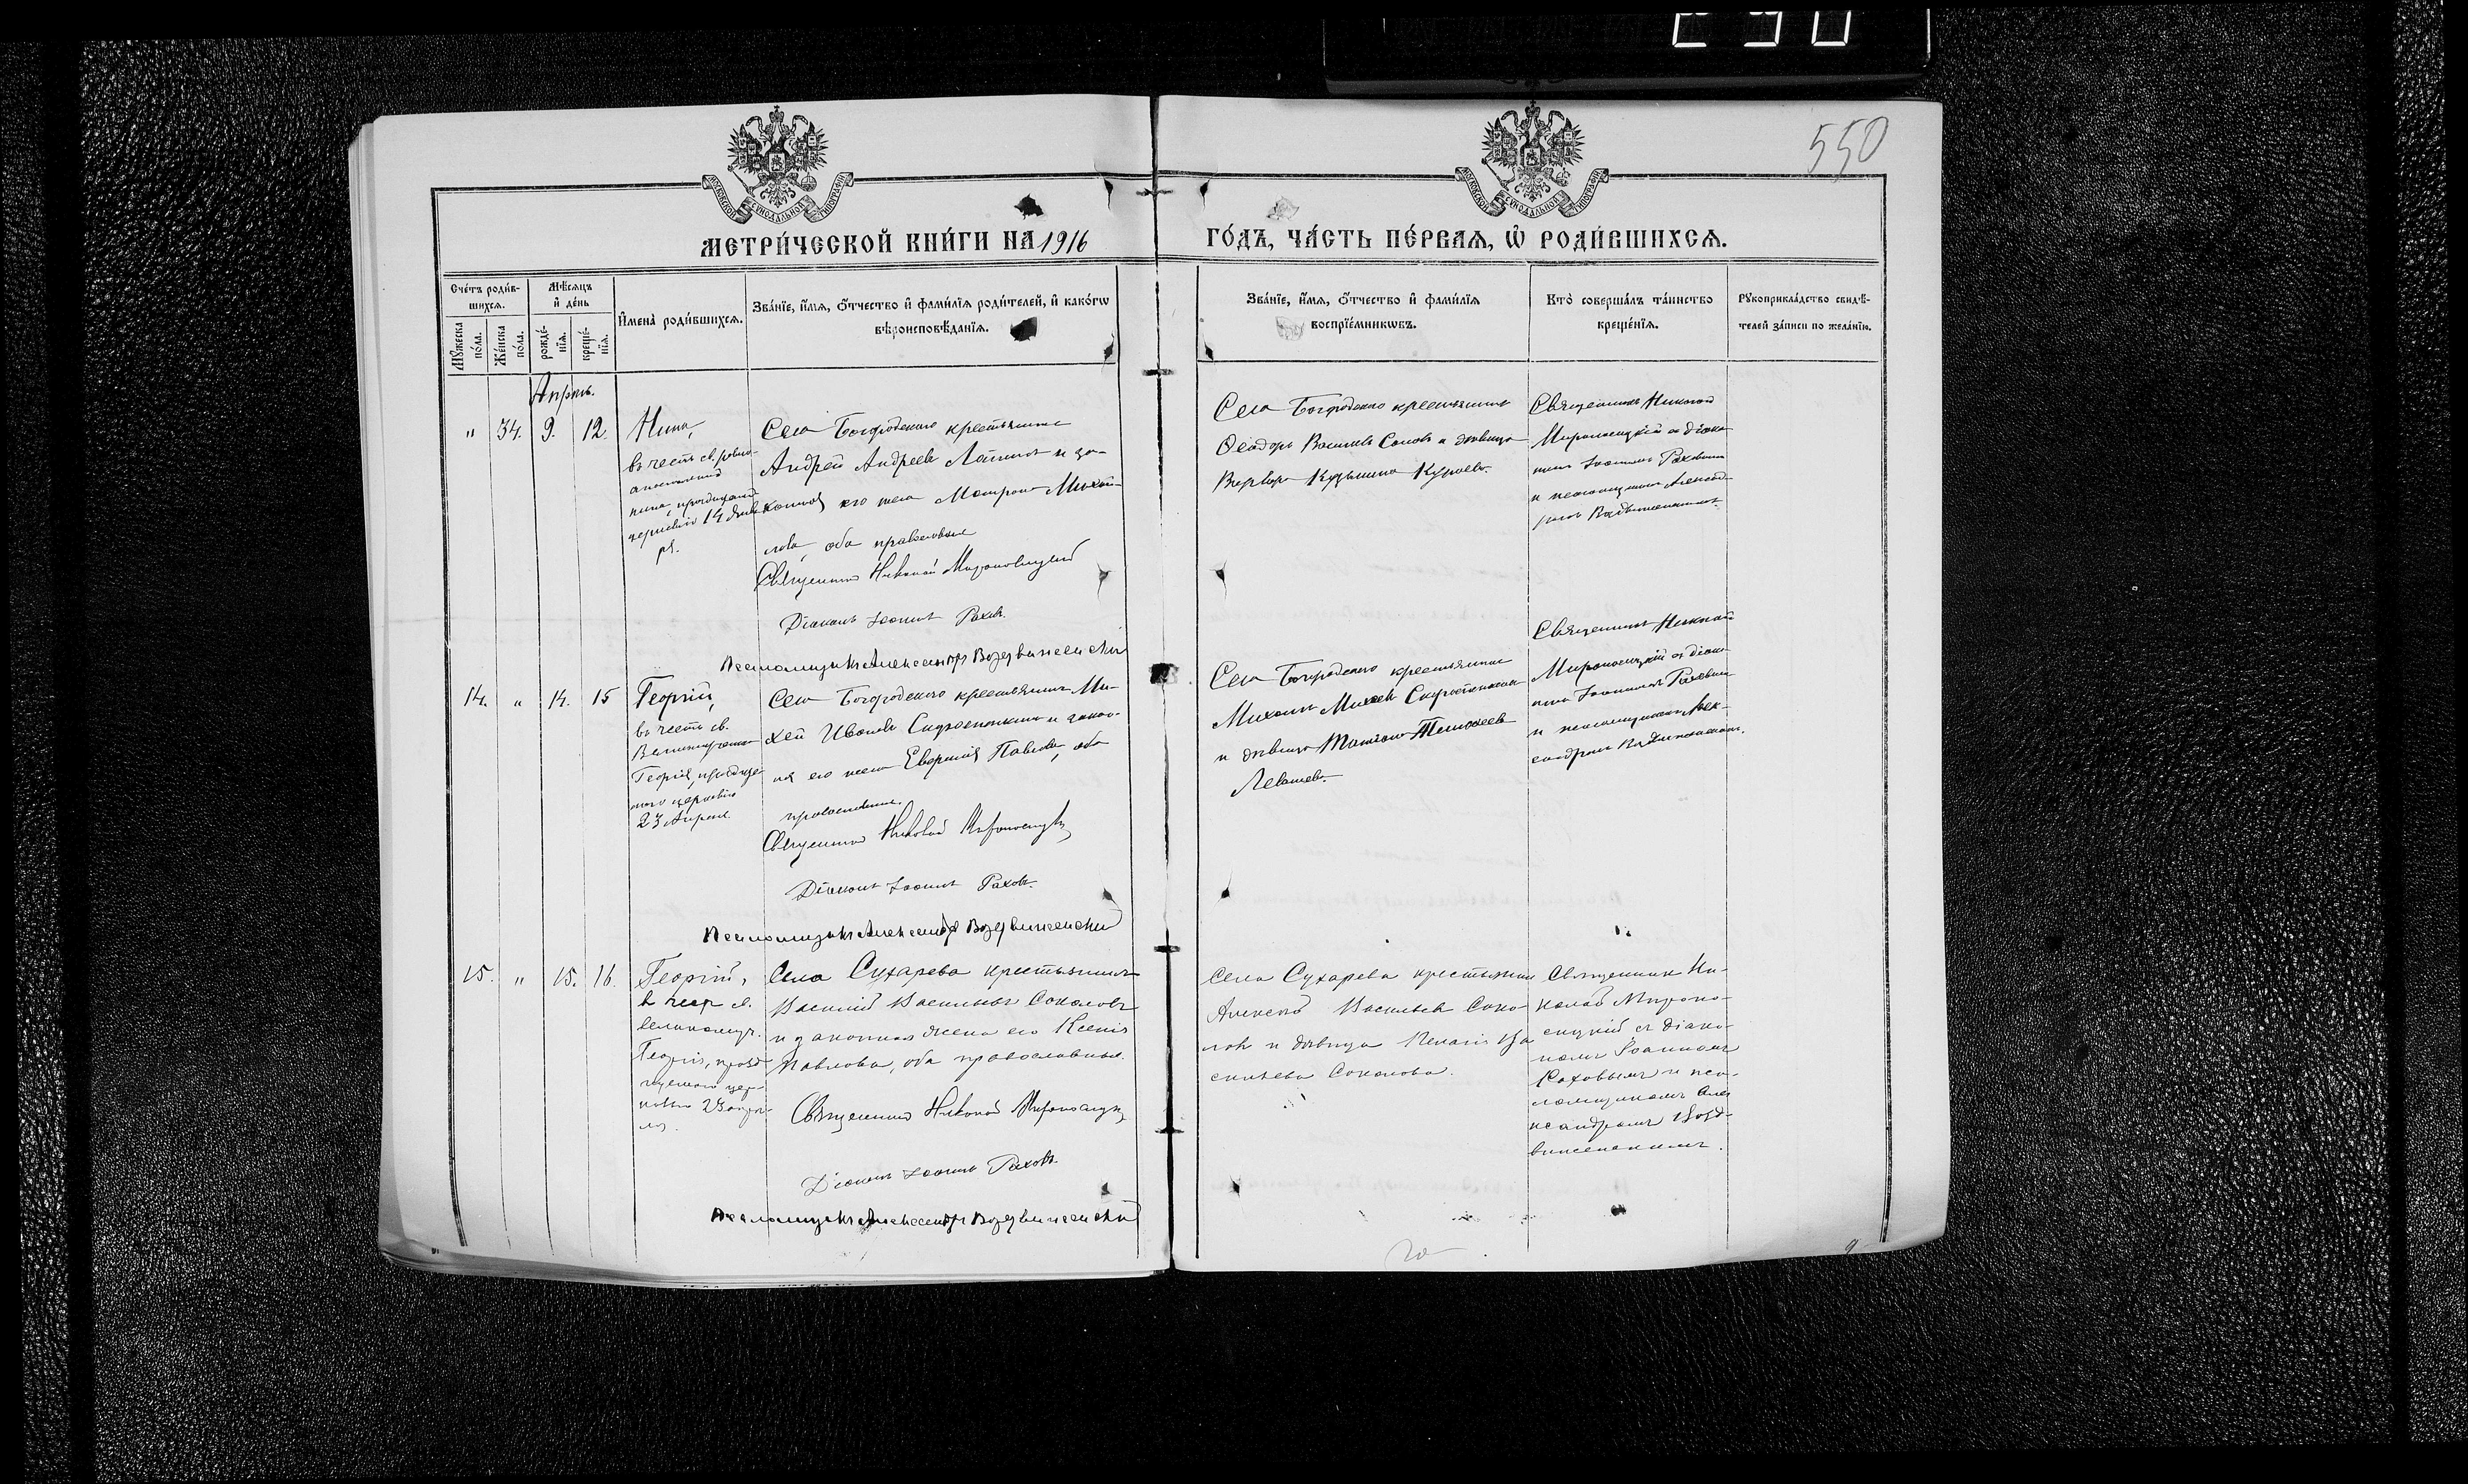 550
МОСКОВСКОЙ СѴНОДАЛЬНОЙ ТИПОГРАФІИ
МОСКОВСКОЙ СѴНОДАЛЬНОЙ ТИПОГРАФІИ
МЕТРИ́ЧЕСКОЙ КНИ́ГИ НА 1916
ГО́ДЪ, ЧА́СТЬ ПЕ́РВАѦ, Ѡ҆ РОДИ́ВШИХСѦ.
Сче́тъ роди́в-
шихсѧ.
Мѹ́жеска
по́ла.
Же́нска
по́ла.
Мѣ́сѧцъ
и҆ де́нь
рожде́-
нїѧ.
креще́-
нїѧ.
И҆мена̀ роди́вшихсѧ.
Зва́нїе, и҆́мѧ, ѻ҆́тчество и҆ фами́лїѧ роди́телей, и҆ како́гѡ
вѣроисповѣ́данїѧ.
Зва́нїе, и҆́мѧ, ѻ҆́тчество и҆ фами́лїѧ
воспрїе́мникѡвъ.
Кто̀ соверша́лъ та́инство
креще́нїѧ.
Рꙋкоприкла́дство свидѣ́-
телей за́писи по жела́нїю.
Апрѣль.
" 34. 9. 12.
Нина,
въ честь св. равно-
апостольной
Нины, празднуемой
церковію 14 Янва
ря.
Села Богородскаго крестьянинъ
Андрей Андреевъ и за-
конная его жена Матрона Михай-
лова, оба православные
Священникъ Николай Мироносицкій
Діаконъ Іоаннъ Раховъ.
Псаломщикъ Александръ Воздвиженскій
Села Богородскаго крестьянинъ
Ѳеодоръ Васильевъ и дѣвица
Варвара Кузьмина
Священникъ Николай
Мироносицкій съ діако-
номъ Іоанномъ Раховымъ
и псаломщикомъ Александ-
ромъ Воздвиженскимъ.
14. " 14. 15
Георгій,
въ честь св.
Великомученика
Георгія, празднуе-
маго церковію
23 Апрѣля.
Села Богородскаго крестьянинъ Ми-
хей Ивановъ и закон-
ная его жена Евфимія Павлова, оба
православные.
Священникъ Николай Мироносицкій
Діаконъ Іоаннъ Раховъ.
Псаломщикъ Александръ Воздвиженскій
Села Богородскаго крестьянинъ
Михаилъ Михеевъ
и дѣвица
Левашева.
Священникъ Николай
Мироносицкій съ діако-
номъ Іоанномъ Раховымъ
и псаломщикомъ Алек-
сандромъ Воздвиженскимъ.
15. " 15. 16.
Георгій,
в чест св.
великомуч.
Георгія, празд-
нуемаго цер-
ковію 23 апрѣ-
ля.
Села Сухарева крестьянинъ
Василій Васильевъ Соколовъ
и законная жена его Ксенія
Павлова, оба православные.
Священникъ Николай Мироносицкій
Діаконъ Іоаннъ Раховъ.
Псаломщикъ Александръ Воздвиженскій
Села Сухарева крестьянин
Алексѣй Васильевъ Соко-
ловъ и дѣвица Ва
сильева Соколова.
Священник Ни-
колай Мироно-
сицкій съ діако-
номъ Іоанномъ
Раховымъ и пса-
ломщикомъ Алек
сандромъ Возд-
виженскимъ.